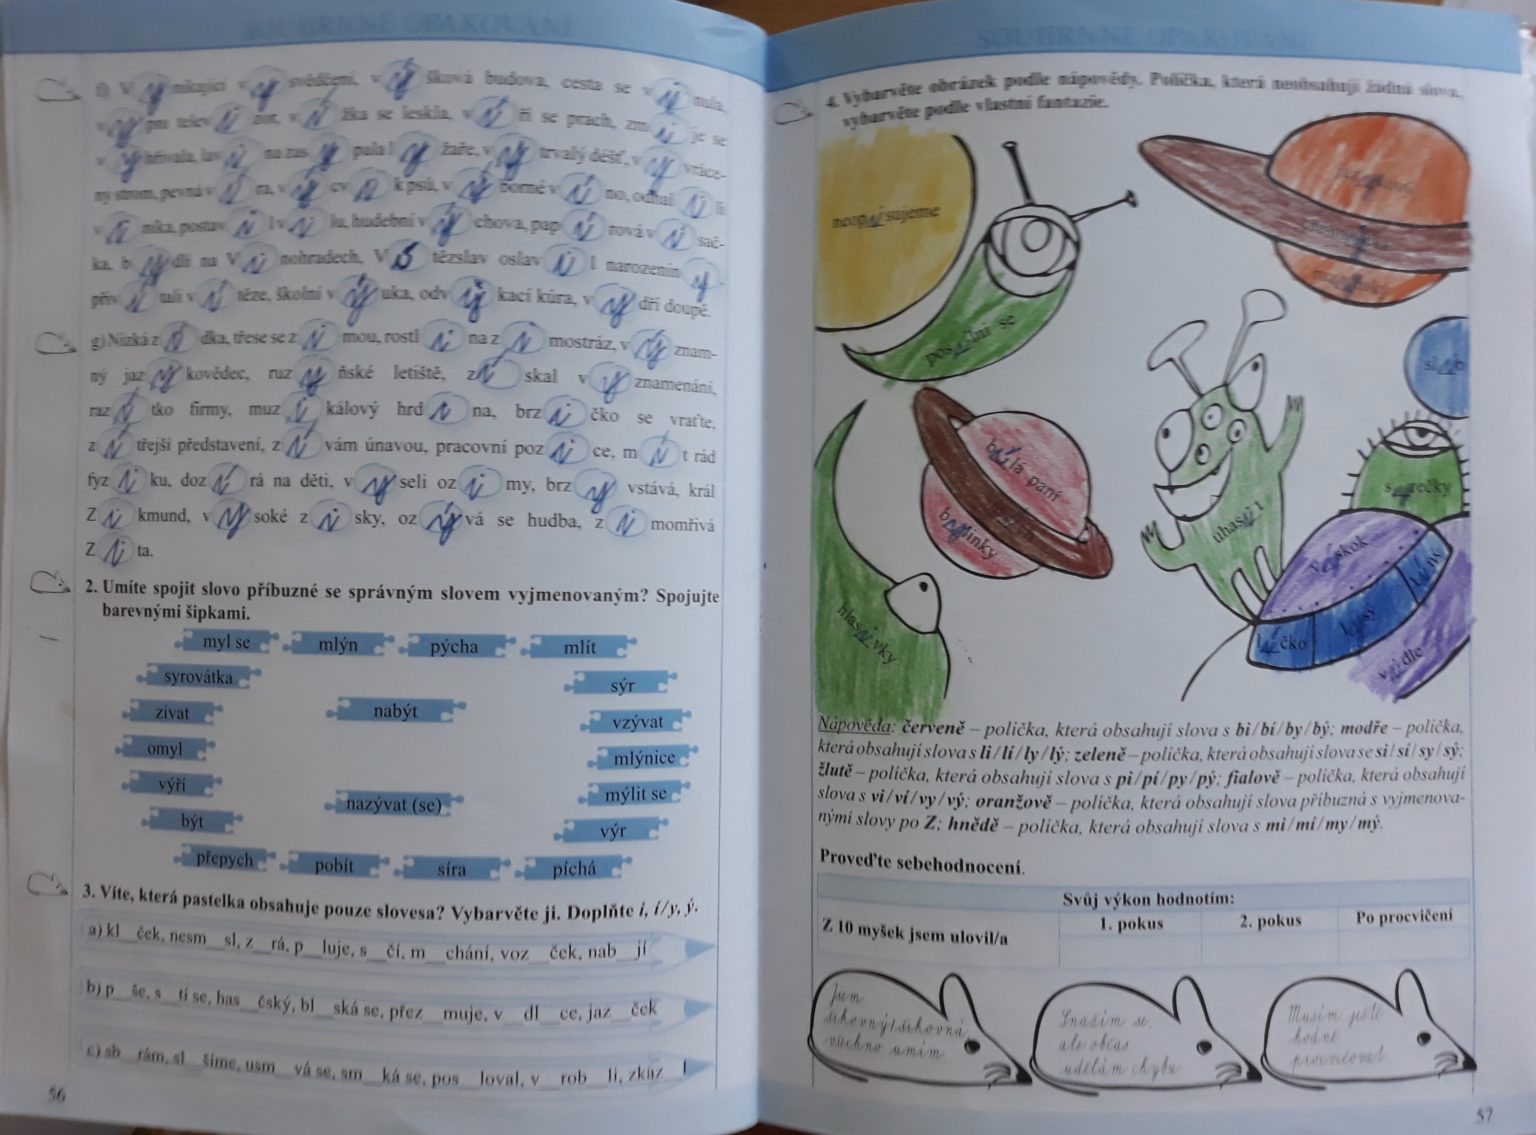 SOUHRNNÉ OPAKOVÁNÍ
f) Vynikající vysvědčení, výšková budova, cesta se vinula,
vypni televizor, vížka se leskla, víří se prach, zmije se
vyhřívala, lavina zasypala lyžaře, vytrvalý déšť, vyvráce-
ný strom, pevná víra, výcvik psů, výborné víno, odhalili
viníka, postavil vilu, hudební výchova, papírová visač-
ka, bydlí na Vinohradech, Vítězslav oslavil narozeniny,
přivítali vítěze, školní výuka, odvykací kúra, vydří doupě.
g) Nízká zídka, třese se zimou, rostlina zimostráz, význam-
ný jazykovědec, ruzyňské letiště, získal vyznamenání,
razítko firmy, muzikálový hrdina, brzičko se vraťte,
zítřejší představení, zívám únavou, pracovní pozice, mít rád
fyziku, dozírá na děti, veseli ozimy, brzy vstává, král
Zikmund, vysoké zisky, ozývá se hudba, zimomřivá
Zita.
2. Umíte spojit slovo příbuzné se správným slovem vyjmenovaným? Spojujte
barevnými šipkami.
myl se mlýn pýcha mlít
syrovátka sýr
zívat nabýt vzývat
omyl mlýnice
výří nazývat (se) mýlit se
být výr
přepych pobít síra píchá
3. Víte, která pastelka obsahuje pouze slovesa? Vybarvěte ji. Doplňte i, í/y, ý.
a) kl__ček, nesm__sl, z__rá, p__luje, s__čí, m__chání, voz__ček, nab__jí
b) p__še, s__tí se, has__čský, bl__ská se, přez__muje, v__dl__ce, jaz__ček
c) sb__rám, sl__šíme, usm__vá se, sm__ká se, pos__loval, v__rob__li, zkaz__l
56
SOUHRNNÉ OPAKOVÁNÍ
4. Vybarvěte obrázek podle nápovědy. Políčka, která neobsahují žádná slova,
vybarvěte podle vlastní fantazie.
neopisujeme
posadní se
bílá paní
bylinky
hlasivky
uhasil
výskok
syrečky
líčko
vidle
Nápověda: červeně – políčka, která obsahují slova s bi/bí/by/bý; modře – políčka,
která obsahují slova s li/lí/ly/lý; zeleně – políčka, která obsahují slova se si/sí/sy/sý;
žlutě – políčka, která obsahují slova s pi/pí/py/pý; fialově – políčka, která obsahují
slova s vi/ví/vy/vý; oranžově – políčka, která obsahují slova příbuzná s vyjmenova-
nými slovy po Z; hnědě – políčka, která obsahují slova s mi/mí/my/mý.
Proveďte sebehodnocení.
Svůj výkon hodnotím:
Z 10 myšek jsem ulovil/a 1. pokus 2. pokus Po procvičení
Jsem
šikovný/šikovná,
všechno umím
Snažím se,
ale občas
udělám chybu
Musím ještě
hodně
procvičovat
57